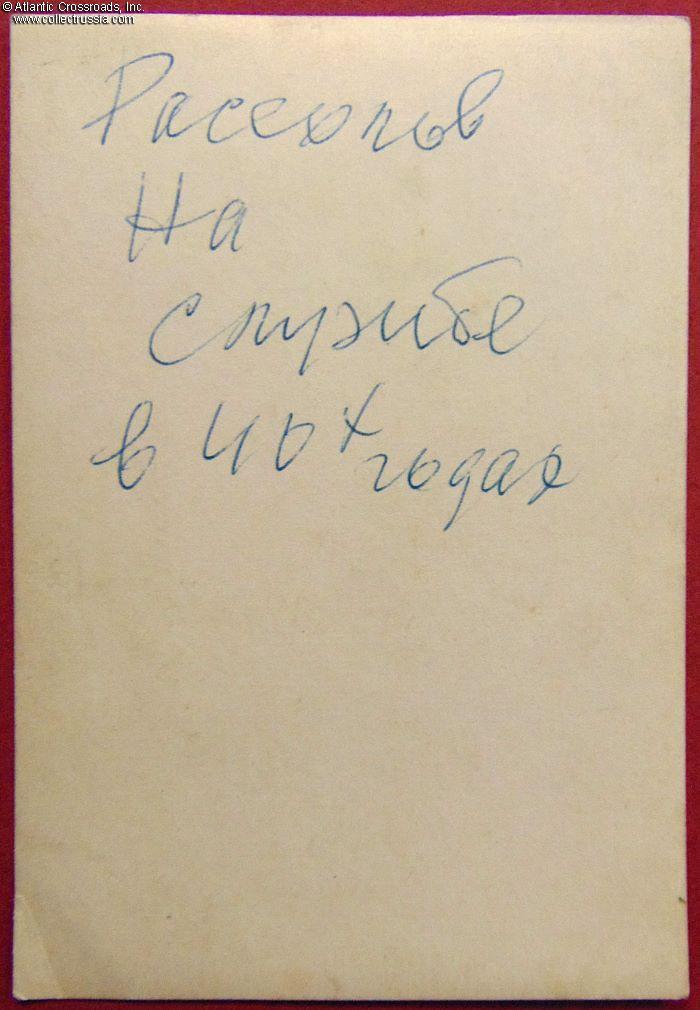 © Atlantic Crossroads, Inc.
www.collectrussia.com
Рассохов
На
службе
в 40х
годах